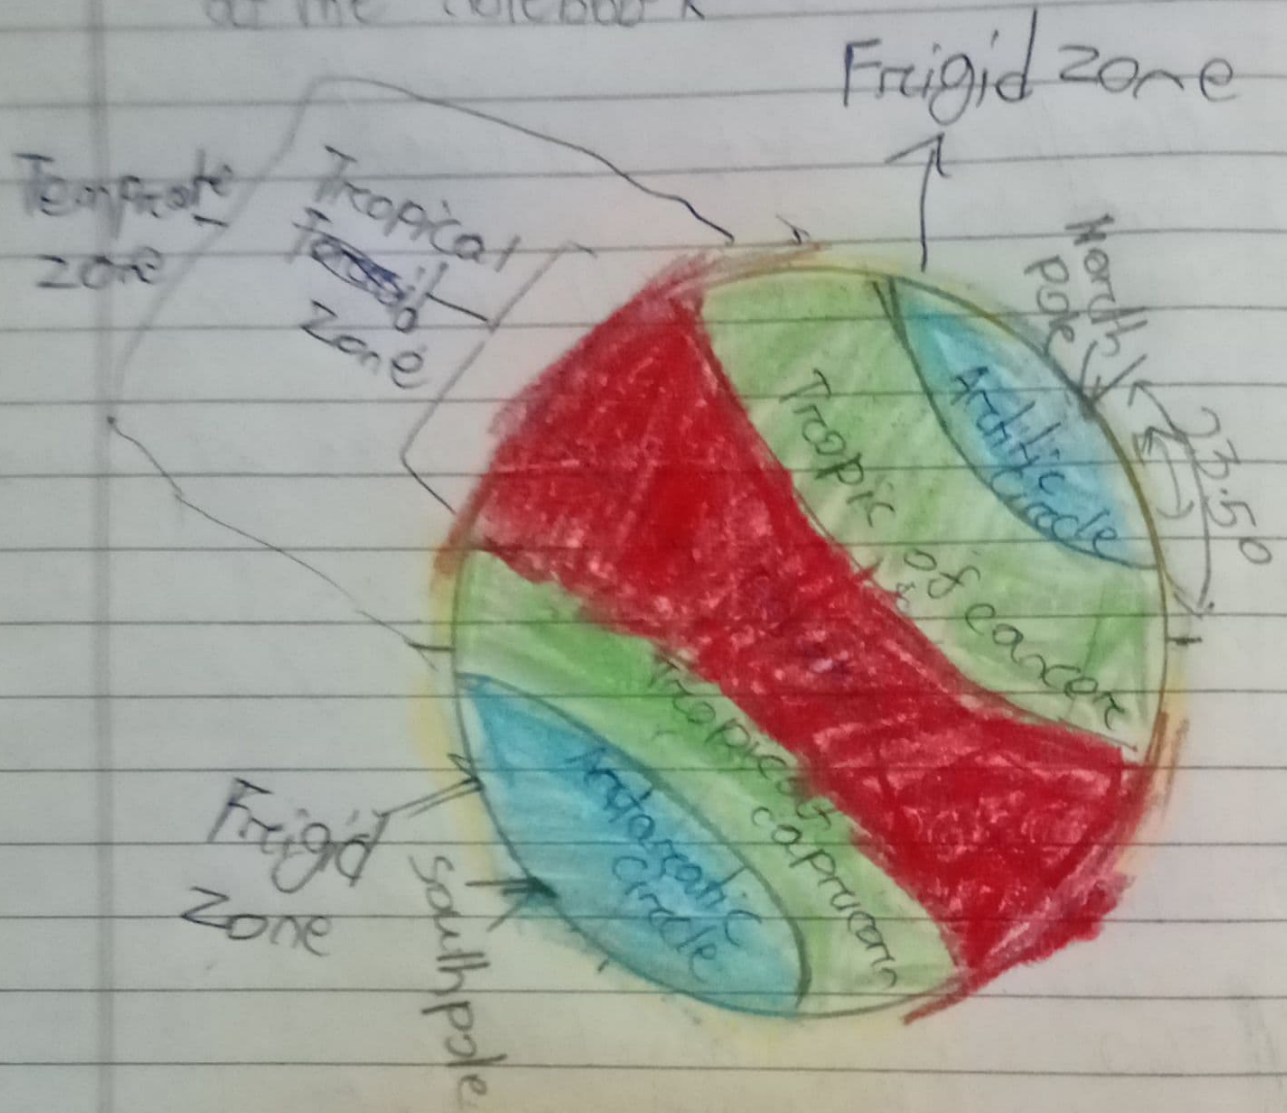 of the notebook
Frigid zone
Temprate
zone
Tropical
Zone
North
pole
23.50
Archtic
Circle
Tropic
of cancer
Tropic of
capricorn
Antarcatic
Circle
Frigid
Zone
South pole